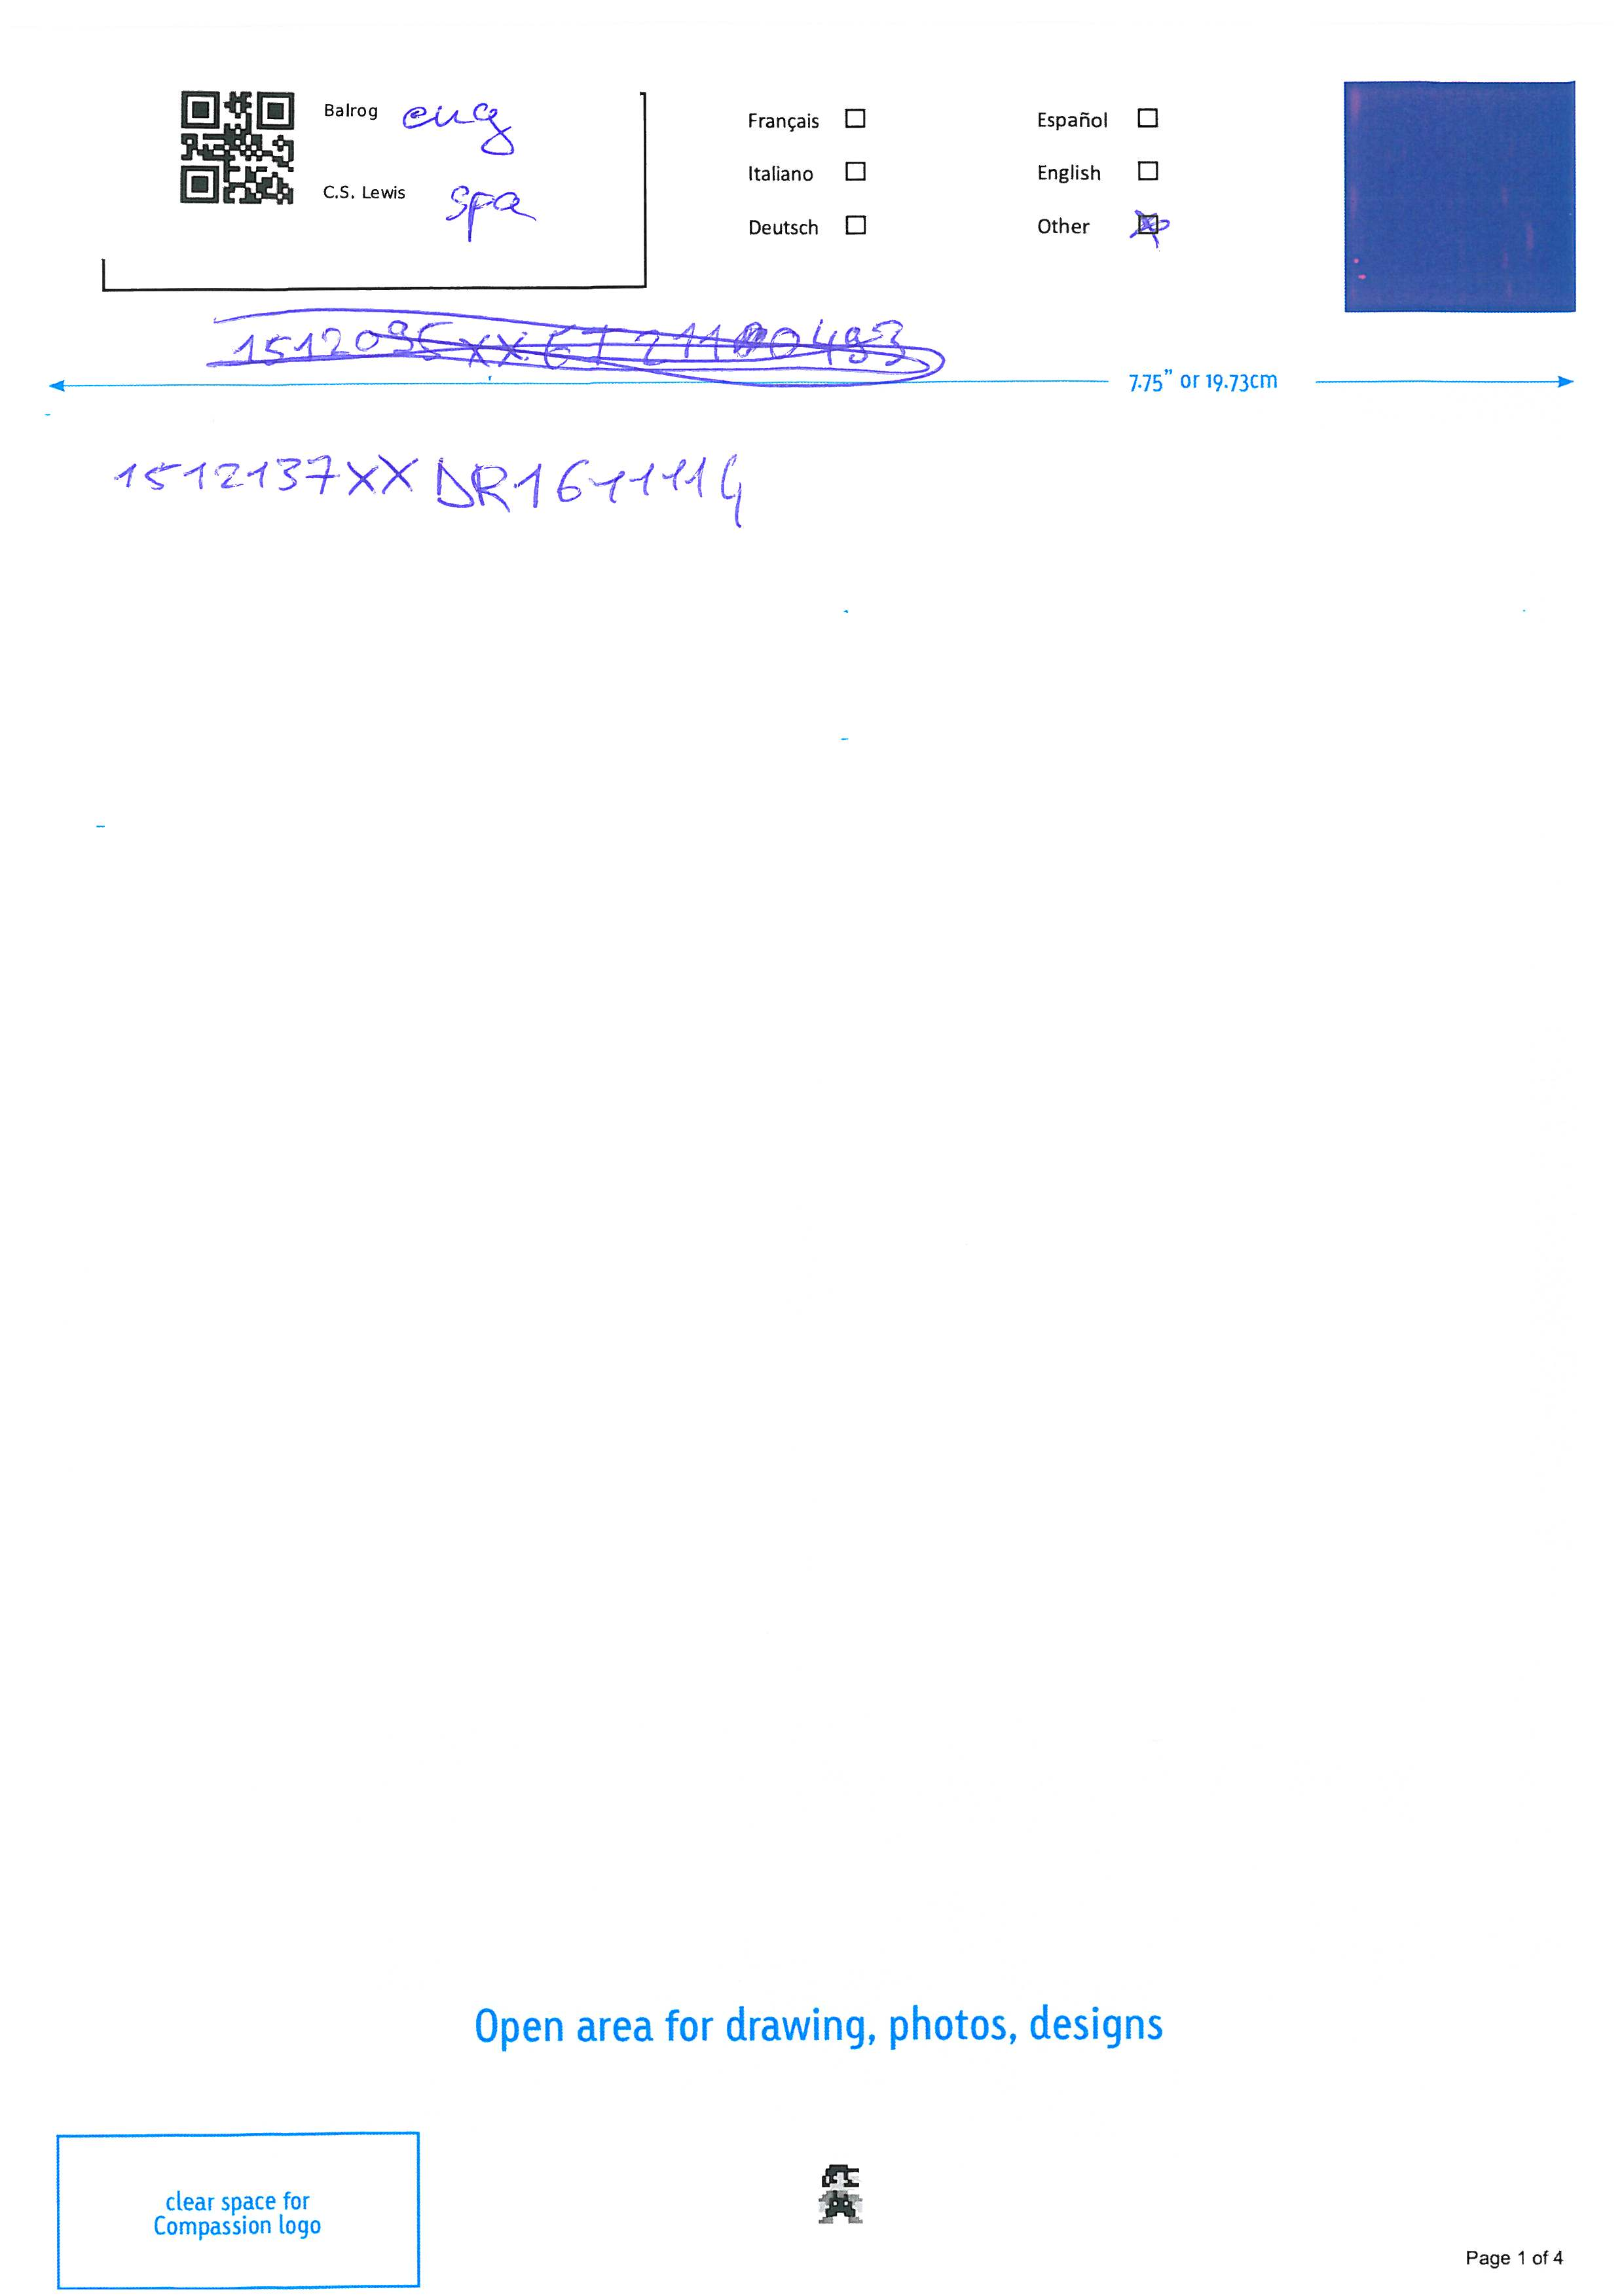 Balrog eng
C.S. Lewis spa
Français
Italiano
Deutsch
Español
English
Other
7.75” or 19.73cm
1512137XXDR1611114
Open area for drawing, photos, designs
clear space for
Compassion logo
Page 1 of 4